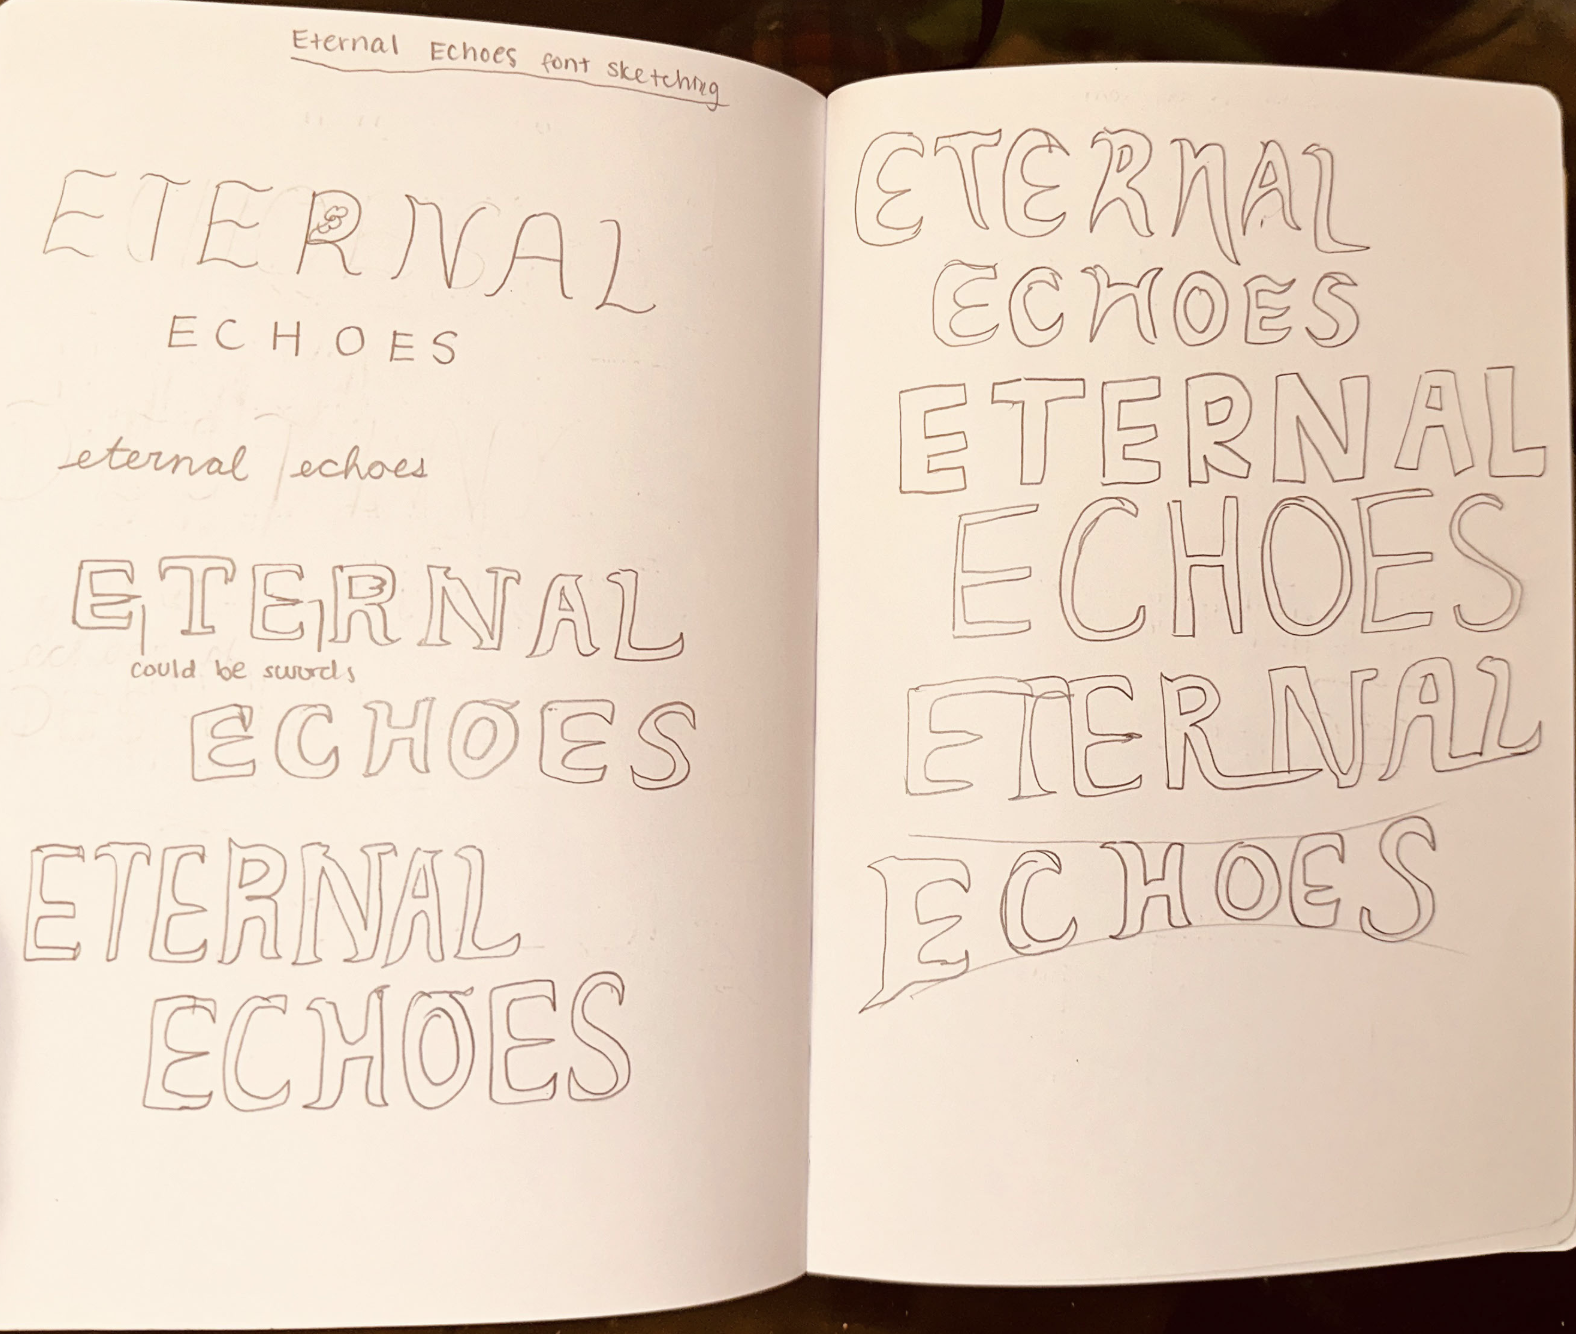 Eternal Echoes font sketching
ETERNAL
ECHOES
eternal echoes
ETERNAL
could be swords
ECHOES
ETERNAL
ECHOES
ETERNAL
ECHOES
ETERNAL
ECHOES
ETERNAL
ECHOES